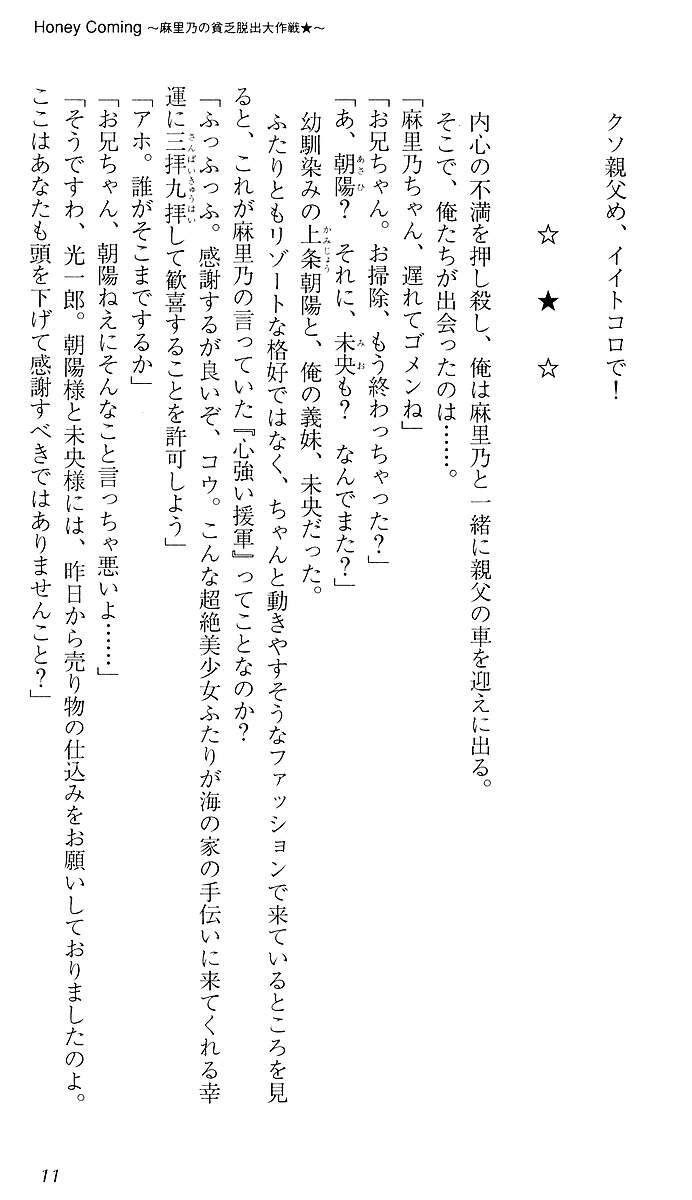 Honey Coming ～麻里乃の貧乏脱出大作戦★～
クソ親父め、イイトコロで！
☆　★　☆
内心の不満を押し殺し、俺は麻里乃と一緒に親父の車を迎えに出る。
そこで、俺たちが出会ったのは……。
「麻里乃ちゃん、遅れてゴメンね」
「お兄ちゃん。お掃除、もう終わっちゃった？」
「あ、朝陽？　それに、未央も？　なんでまた？」
幼馴染みの上条朝陽と、俺の義妹、未央だった。
ふたりともリゾートな格好ではなく、ちゃんと動きやすそうなファッションで来ているところを見
ると、これが麻里乃の言っていた『心強い援軍』ってことなのか？
「ふっふっふ。感謝するが良いぞ、コウ。こんな超絶美少女ふたりが海の家の手伝いに来てくれる幸
運に三拝九拝して歓喜することを許可しよう」
「アホ。誰がそこまでするか」
「お兄ちゃん、朝陽ねえにそんなこと言っちゃ悪いよ……」
「そうですわ、光一郎。朝陽様と未央様には、昨日から売り物の仕込みをお願いしておりましたのよ。
ここはあなたも頭を下げて感謝すべきではありませんこと？」
11